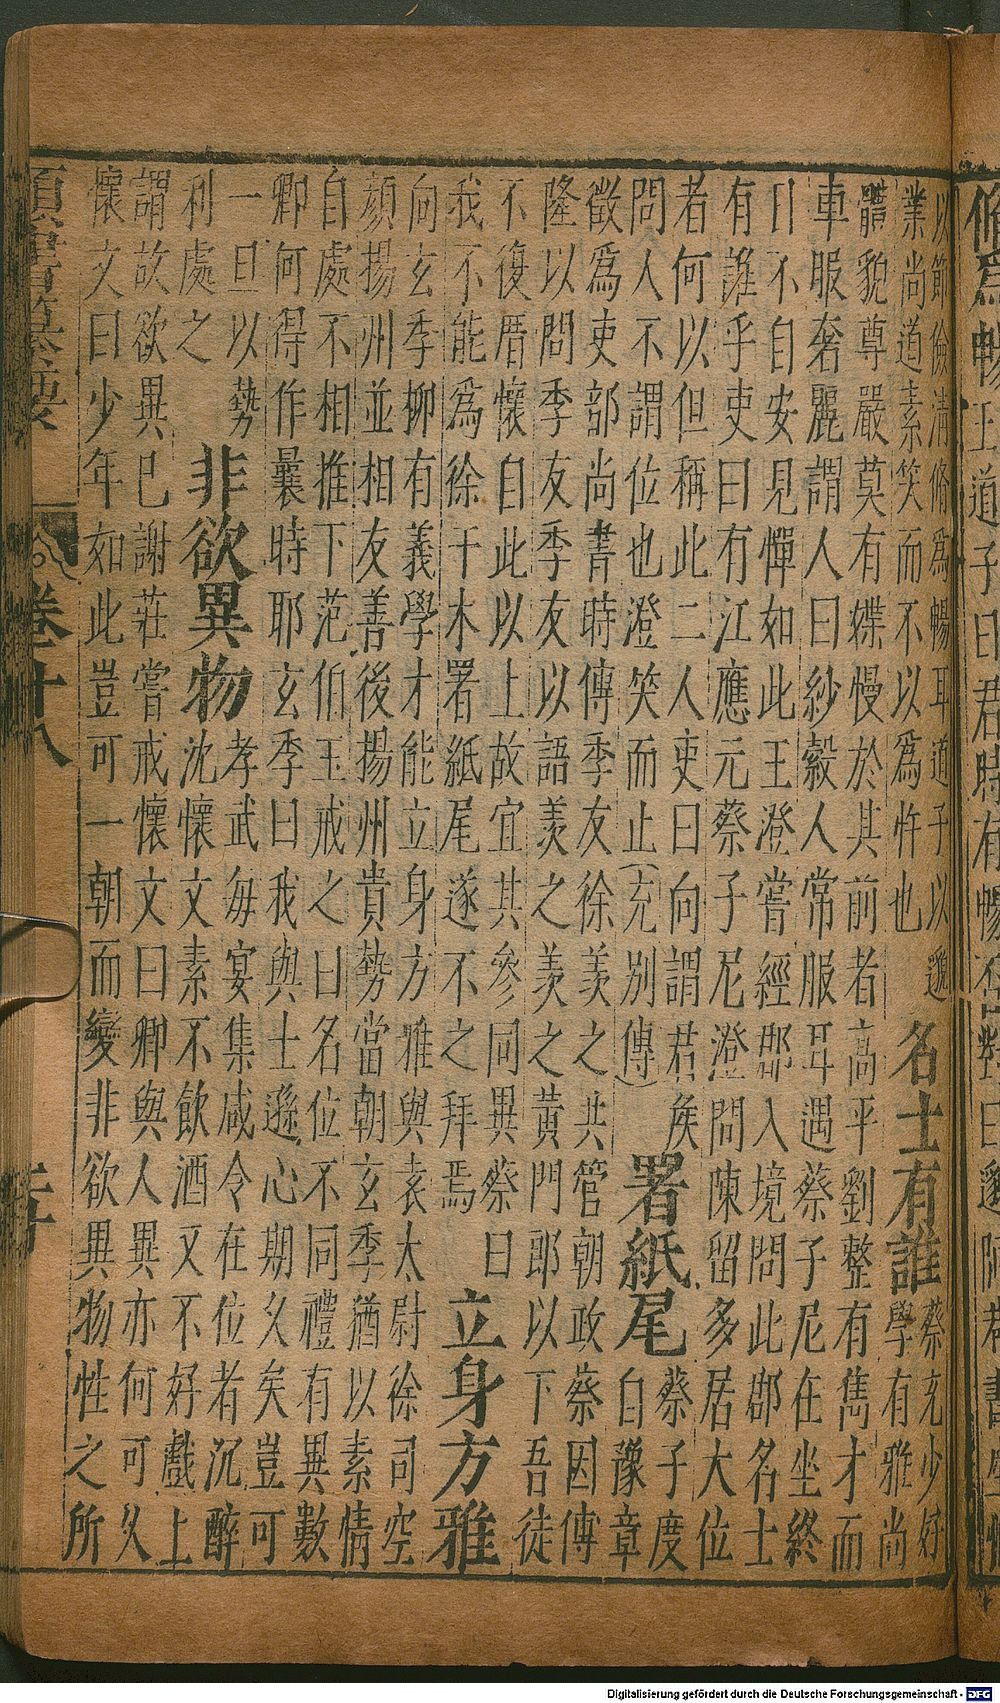 以節儉清脩爲暢耳道子以邈
業尚道素笑而不以爲忤也
名士有誰
蔡充少好
學有雅尚
體貌尊嚴莫有媟慢於其前者高平劉整有雋才而
車服奢麗謂人曰紗縠人常服耳遇蔡子尼在坐終
日不自安見憚如此王澄嘗經郡入境問此郡名士
有誰乎吏曰有江應元蔡子尼澄問陳留多居大位
者何以但稱此二人吏曰向謂君侯
問人不謂位也澄笑而止(充別傳)
署紙尾
蔡子度
自豫章
徵爲吏部尚書時傳季友徐羨之共管朝政蔡因傳
隆以問季友季友以語羨之羨之黃門郎以下吾徒
不復厝懷自此以上故宜共參同異蔡曰
我不能爲徐干木署紙尾遂不之拜焉
立身方雅
向玄季柳有義學才能立身方雅與袁太尉徐司空
顏揚州並相友善後揚州貴勢當朝玄季猶以素情
自處不相推下范伯玉戒之曰名位不同禮有異數
卿何得作曩時耶玄季曰我與士遜心期久矣豈可
一旦以勢
利處之
非欲異物
孝武每宴集咸令在位者沉醉
沈懷文素不飲酒又不好戲上
謂故欲異己謝莊嘗戒懷文曰卿與人異亦何可久
懷文曰少年如此豈可一朝而變非欲異物性之所
卷十八
Digitalisierung gefördert durch die Deutsche Forschungsgemeinschaft - DFG